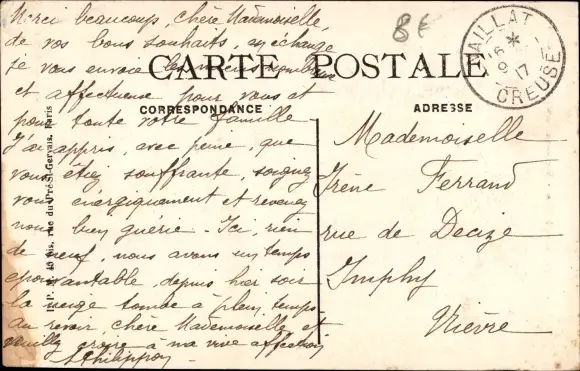 Merci beaucoup, chère Mademoiselle,
de vos bons souhaits, en échange
je vous envoie les miens
et affectueuse pour vous et
pour toute votre famille
J'ai appris, avec peine, que
vous étiez souffrante, soignez
vous énergiquement et revenez
nous bien guérie - Ici, rien
de neuf, nous avons un temps
épouvantable, depuis hier soir
la neige tombe à plein temps
au revoir, chère Mademoiselle et
veuillez croire à ma vive affection
8€
CARTE POSTALE
CORRESPONDANCE
ADRESSE
AILLAT
CREUSE
17
Mademoiselle
Irène Ferrand
rue de Decize
Imphy
Nièvre
rue du Pré-St-Gervais, Paris